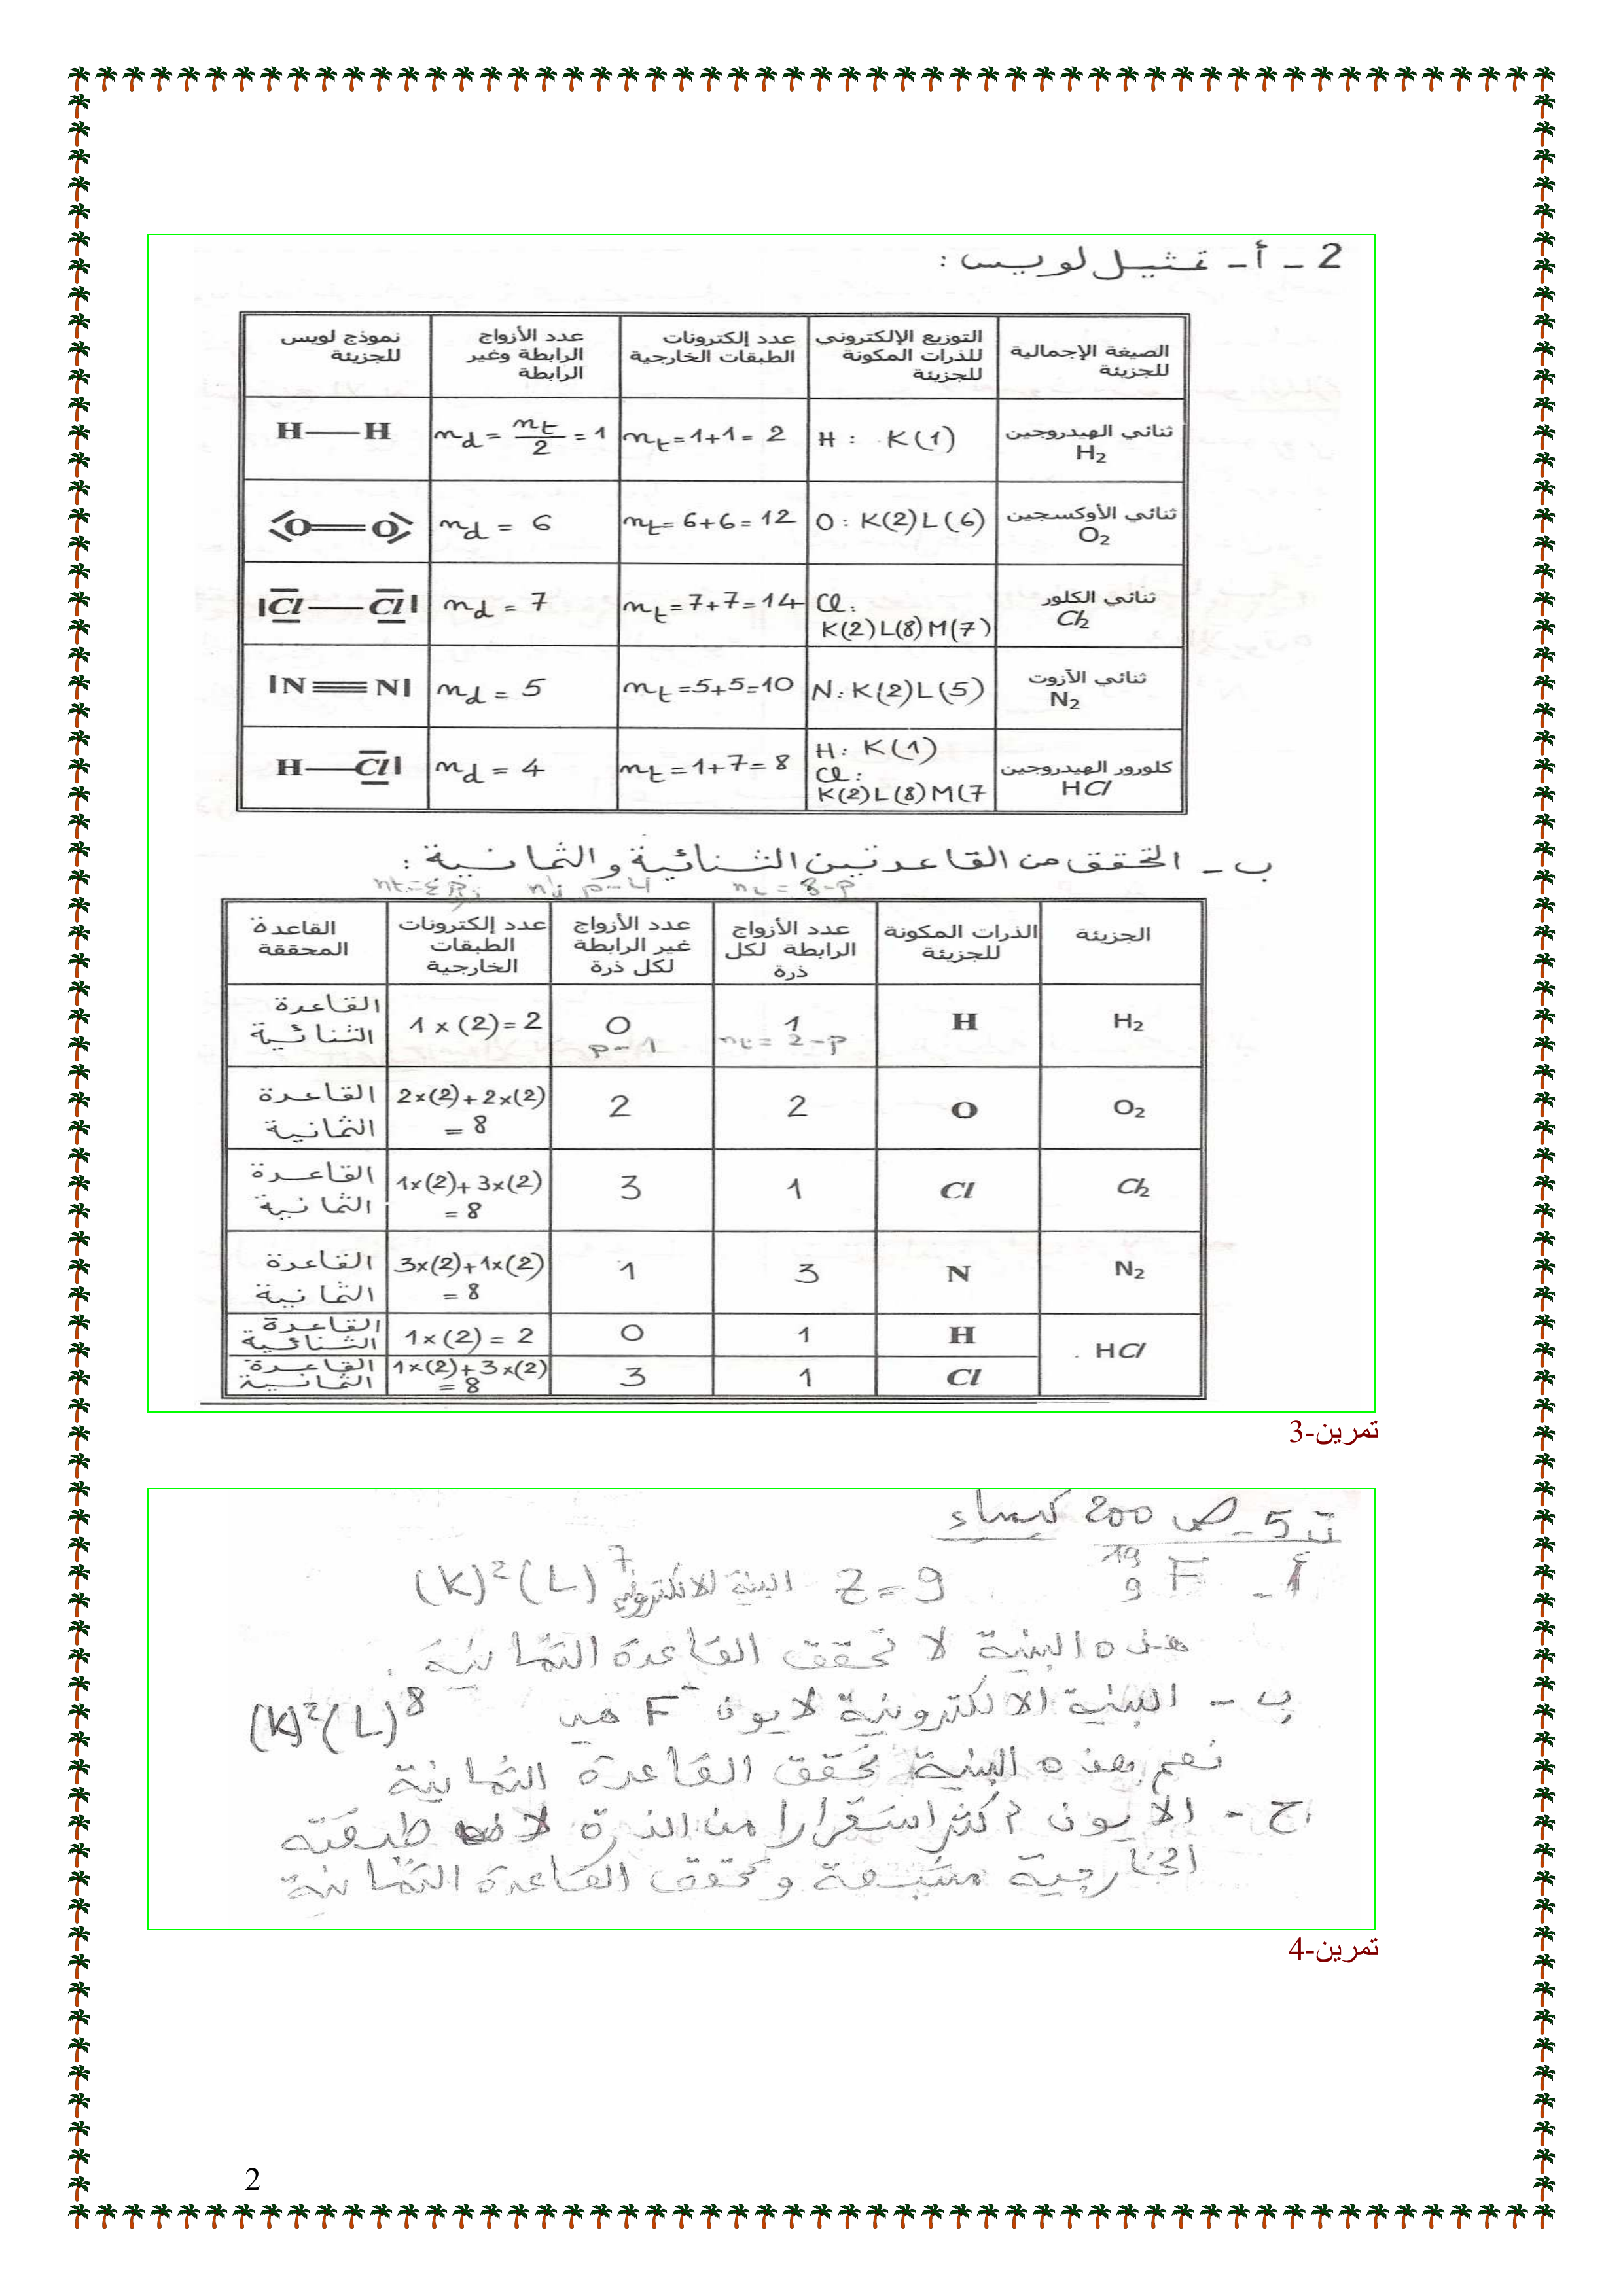 2 - أ - تمثيل لويس :
الصيغة الإجمالية للجزيئة | التوزيع الإلكتروني للذرات المكونة للجزيئة | عدد إلكترونات الطبقات الخارجية | عدد الأزواج الرابطة وغير الرابطة | نموذج لويس للجزيئة
ثنائي الهيدروجين H₂ | H : K(1) | nt = 1+1 = 2 | nd = nt/2 = 1 | H—H
ثنائي الأوكسجين O₂ | O : K(2) L(6) | nt = 6+6 = 12 | nd = 6 | O=O
ثنائي الكلور Cl₂ | Cl : K(2) L(8) M(7) | nt = 7+7 = 14 | nd = 7 | |Cl—Cl|
ثنائي الآزوت N₂ | N : K(2) L(5) | nt = 5+5 = 10 | nd = 5 | |N≡N|
كلورور الهيدروجين HCl | H : K(1) Cl : K(2) L(8) M(7 | nt = 1+7 = 8 | nd = 4 | H—Cl|
ب - التحقق من القاعدتين الثنائية والثمانية :
الجزيئة | الذرات المكونة للجزيئة | عدد الأزواج الرابطة لكل ذرة | عدد الأزواج غير الرابطة لكل ذرة | عدد إلكترونات الطبقات الخارجية | القاعدة المحققة
H₂ | H | 1 nt = 2-p | 0 p-1 | 1×(2) = 2 | القاعدة الثنائية
O₂ | O | 2 | 2 | 2×(2)+2×(2) = 8 | القاعدة الثمانية
Cl₂ | Cl | 1 | 3 | 1×(2)+3×(2) = 8 | القاعدة الثمانية
N₂ | N | 3 | 1 | 3×(2)+1×(2) = 8 | القاعدة الثمانية
HCl | H | 1 | 0 | 1×(2) = 2 | القاعدة الثنائية
Cl | 1 | 3 | 1×(2)+3×(2) = 8 | القاعدة الثمانية
تمرين-3
ت 5 - ص 200 كيمياء
أ - ¹⁹₉F Z = 9 البنية الالكترونية (K)²(L)⁷
هذه البنية لا تحقق القاعدة الثمانية .
ب - البنية الالكترونية لايون F⁻ هي (K)²(L)⁸
نعم هذه البنية تحقق القاعدة الثمانية
ج - الايون أكثر استقرارا من الذرة لان طبقته
الخارجية مشبعة وتحقق القاعدة الثمانية
تمرين-4
2